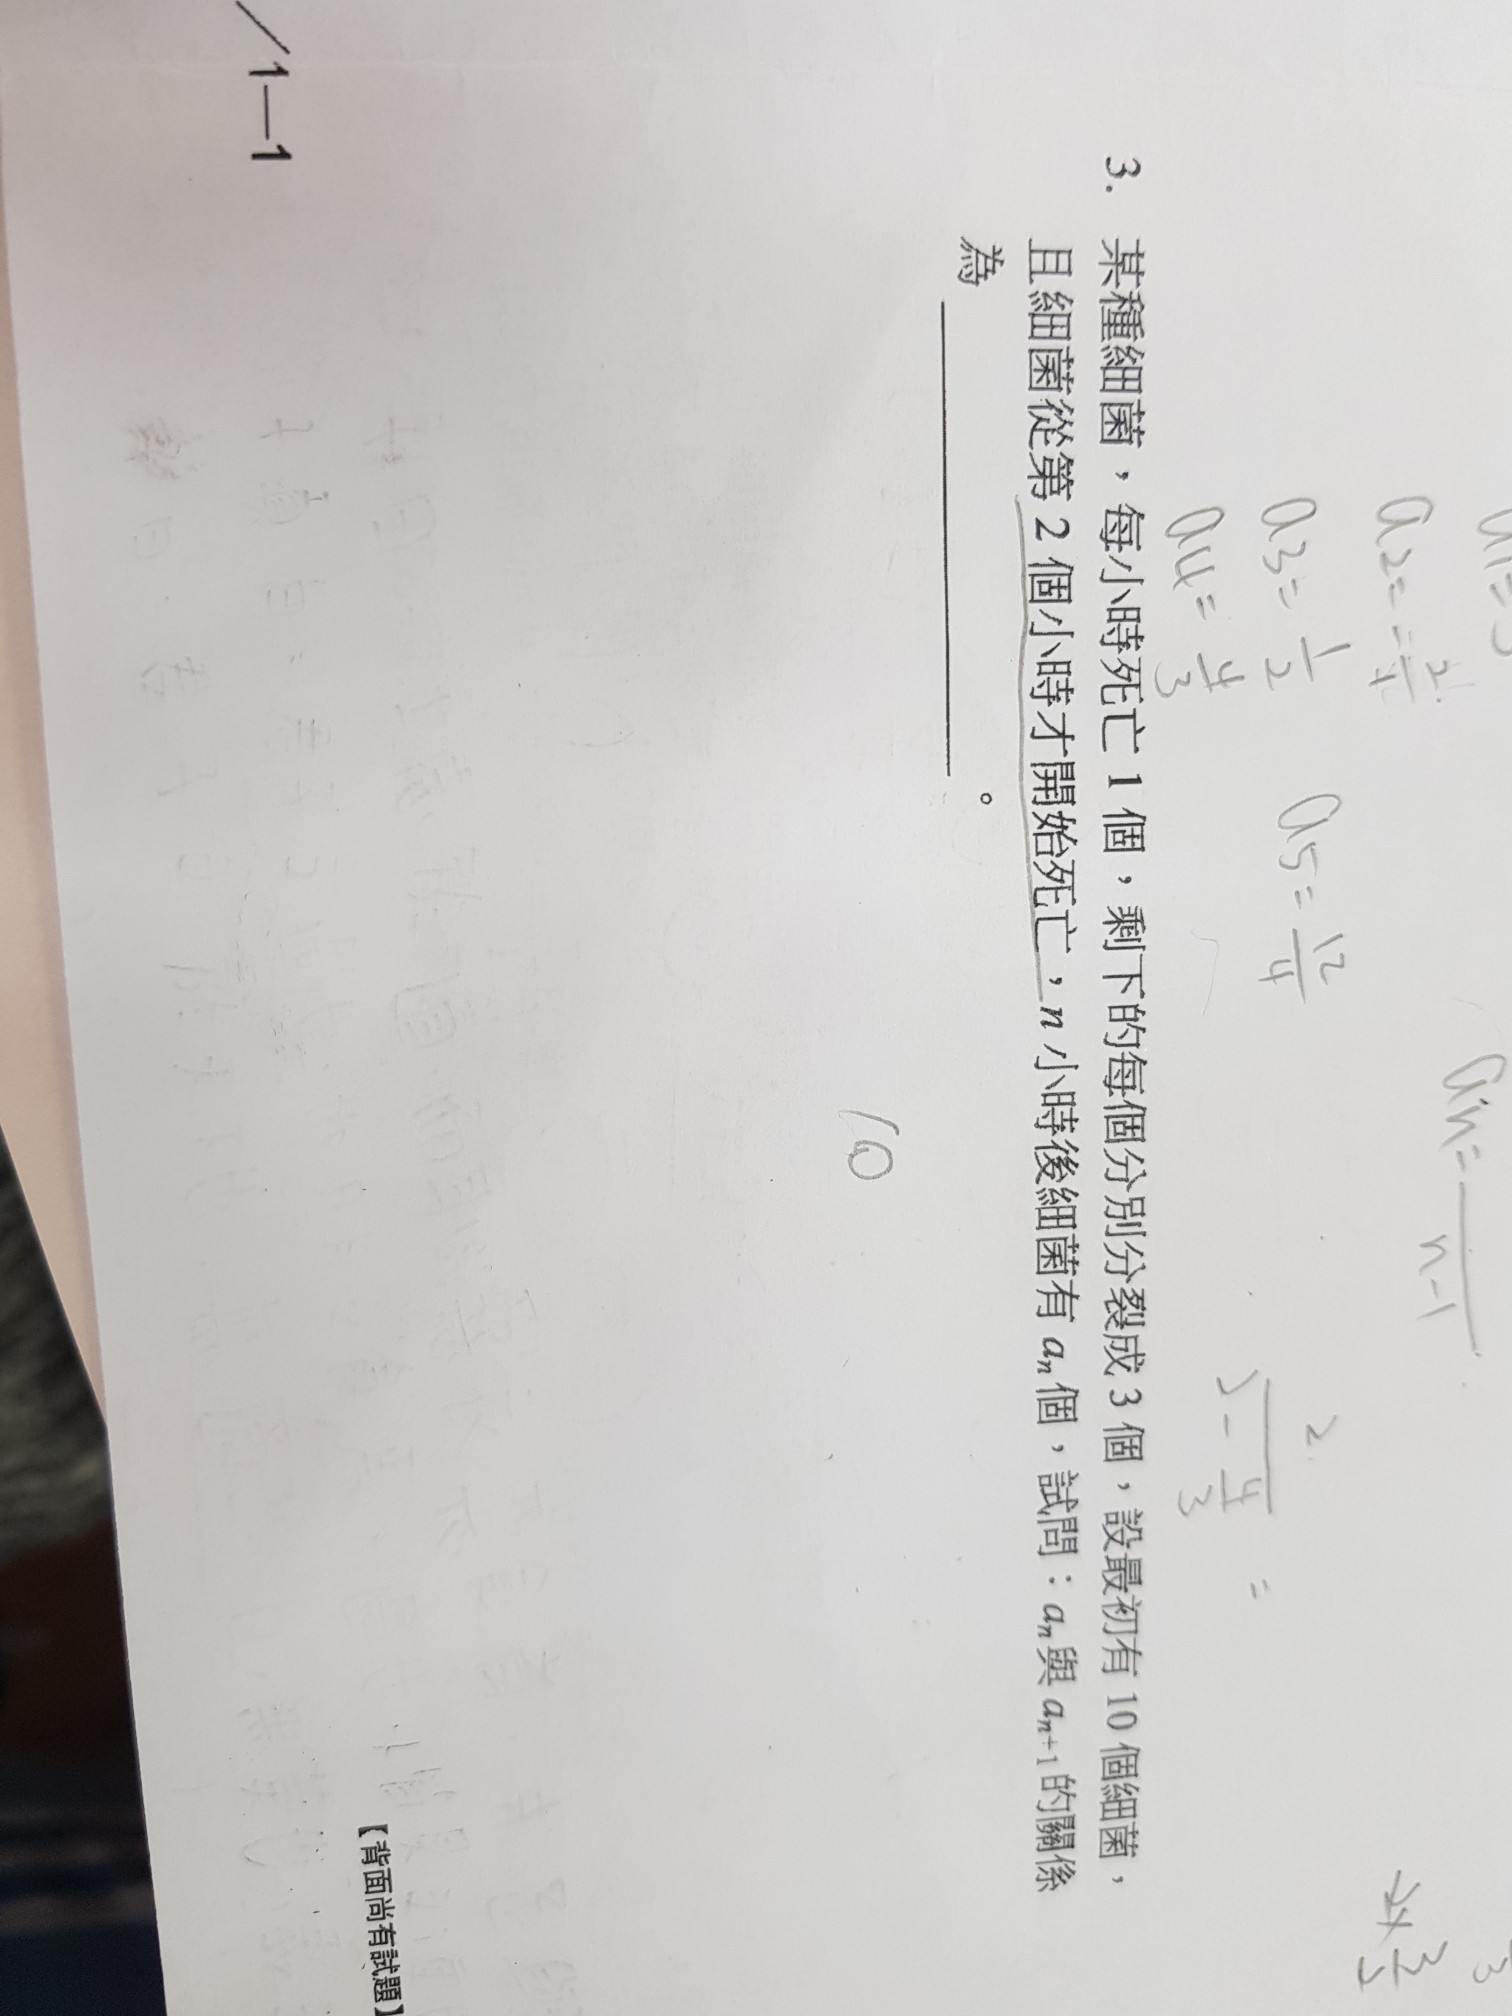 a2=
a3= 1/2
a4= 4/3
a5= 12/4
an= /n-1
3. 某種細菌，每小時死亡 1 個，剩下的每個分別分裂成 3 個，設最初有 10 個細菌，
且細菌從第 2 個小時才開始死亡，n 小時後細菌有 an 個，試問：an 與 an+1 的關係
為 ＿＿＿＿＿＿ 。
10
【背面尚有試題】
1—1